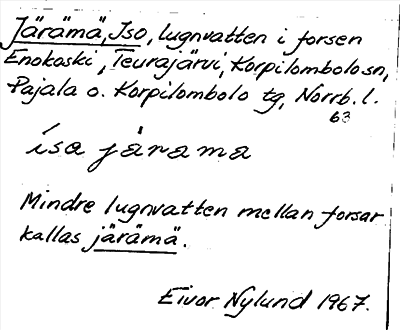 Järämä, Iso, lugnvatten i forsen
Enokoski, Teurajärvi, Korpilombolo sn,
Pajala o. Korpilombolo tg, Norrb. l.
63
iso järämä
Mindre lugnvatten mellan forsar
kallas järämä.
Eivor Nylund 1967.